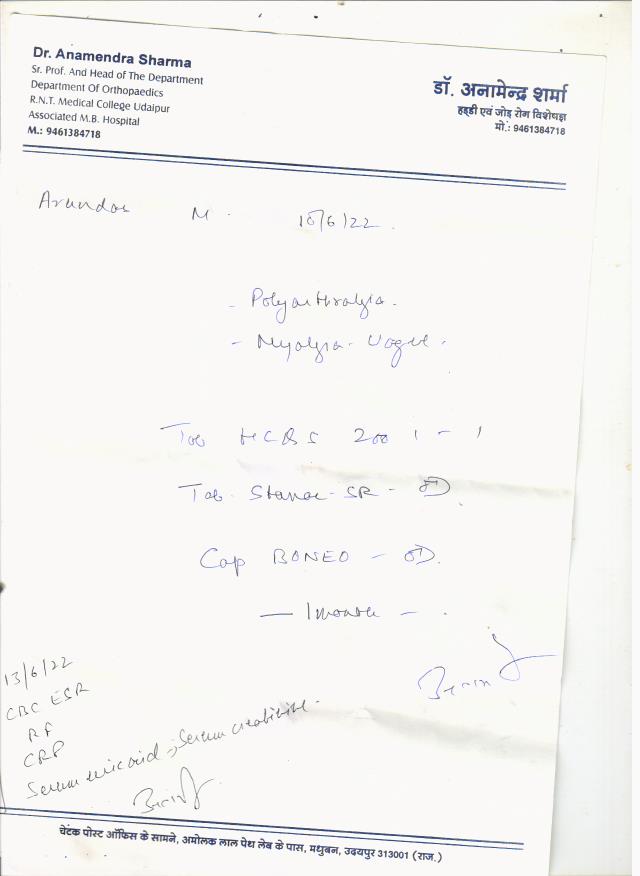 Dr. Anamendra Sharma
Sr. Prof. And Head of The Department
Department Of Orthopaedics
R.N.T. Medical College Udaipur
Associated M.B. Hospital
M.: 9461384718
डॉ. अनामेन्द्र शर्मा
हड्डी एवं जोड़ रोग विशेषज्ञ
मो.: 9461384718
M. 10/6/22.
- Polyarthralgia.
- Myalgia - Vague.
Tab HCQS 200 1 - 1
Tab. SR - OD
Cap BONEO - OD.
— 1 month — .
13/6/22
CBC ESR
RF
CRP
Serum uric acid, Serum creatinine.
चेटक पोस्ट ऑफिस के सामने, अमोलक लाल पेथ लेब के पास, मधुबन, उदयपुर 313001 (राज.)